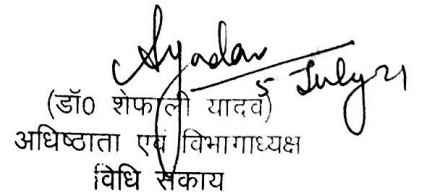 Syadav
5 July 21
(डॉ0 शेफाली यादव)
अधिष्ठाता एवं विभागाध्यक्ष
विधि संकाय